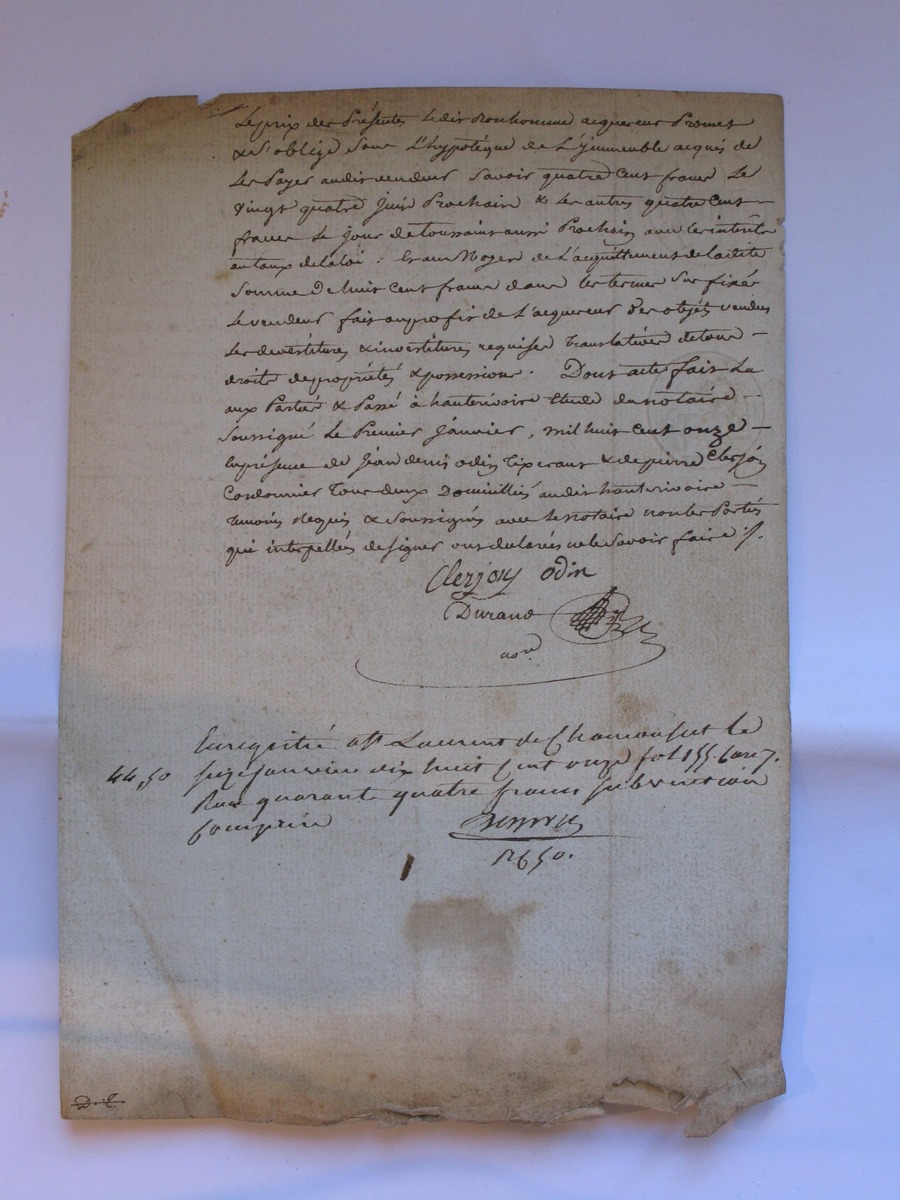 Le prix des Présentes Ledit Bonhomme acquereur Promet
& S'oblige Sous L'hypotèque de L'ymmeuble acquis de
Les Payer audit vendeur Savoir quatre Cent francs Le
vingt quatre Juin Prochain & Les autres quatre Cent
francs Le Jour de toussaint aussi Prochain avec les interêts
au taux de la loi : Et au Moyen de L'acquittement de la dite
Somme De huit Cent francs dans les termes Sus fixés
Le vendeur fait au profit de L'acquereur des objets vendus
Les devestitures & investitures requises translatives de tous
droits de propriétés & possessions. Dont acte fait Lu
aux Parties & Passé à hauterivoire Etude du notaire
Soussigné Le Premier Janvier, mil huit cent onze
En présence de Jean denis odin tixerant & de pierre Clerjon
Cordonnier tous deux Domiciliés audit hauterivoire
temoins Requis & Soussignés avec le notaire non les Parties
qui interpellées de signer ont declarées ne le Savoir faire ./.
Clerjon odin
Durand
nore
Enregistré a St Laurent de Chamousset le
44,50 seize janvier dix huit Cent onze fol 155. Case 7.
Reçu quarante quatre francs subvention
Comprise
1650.